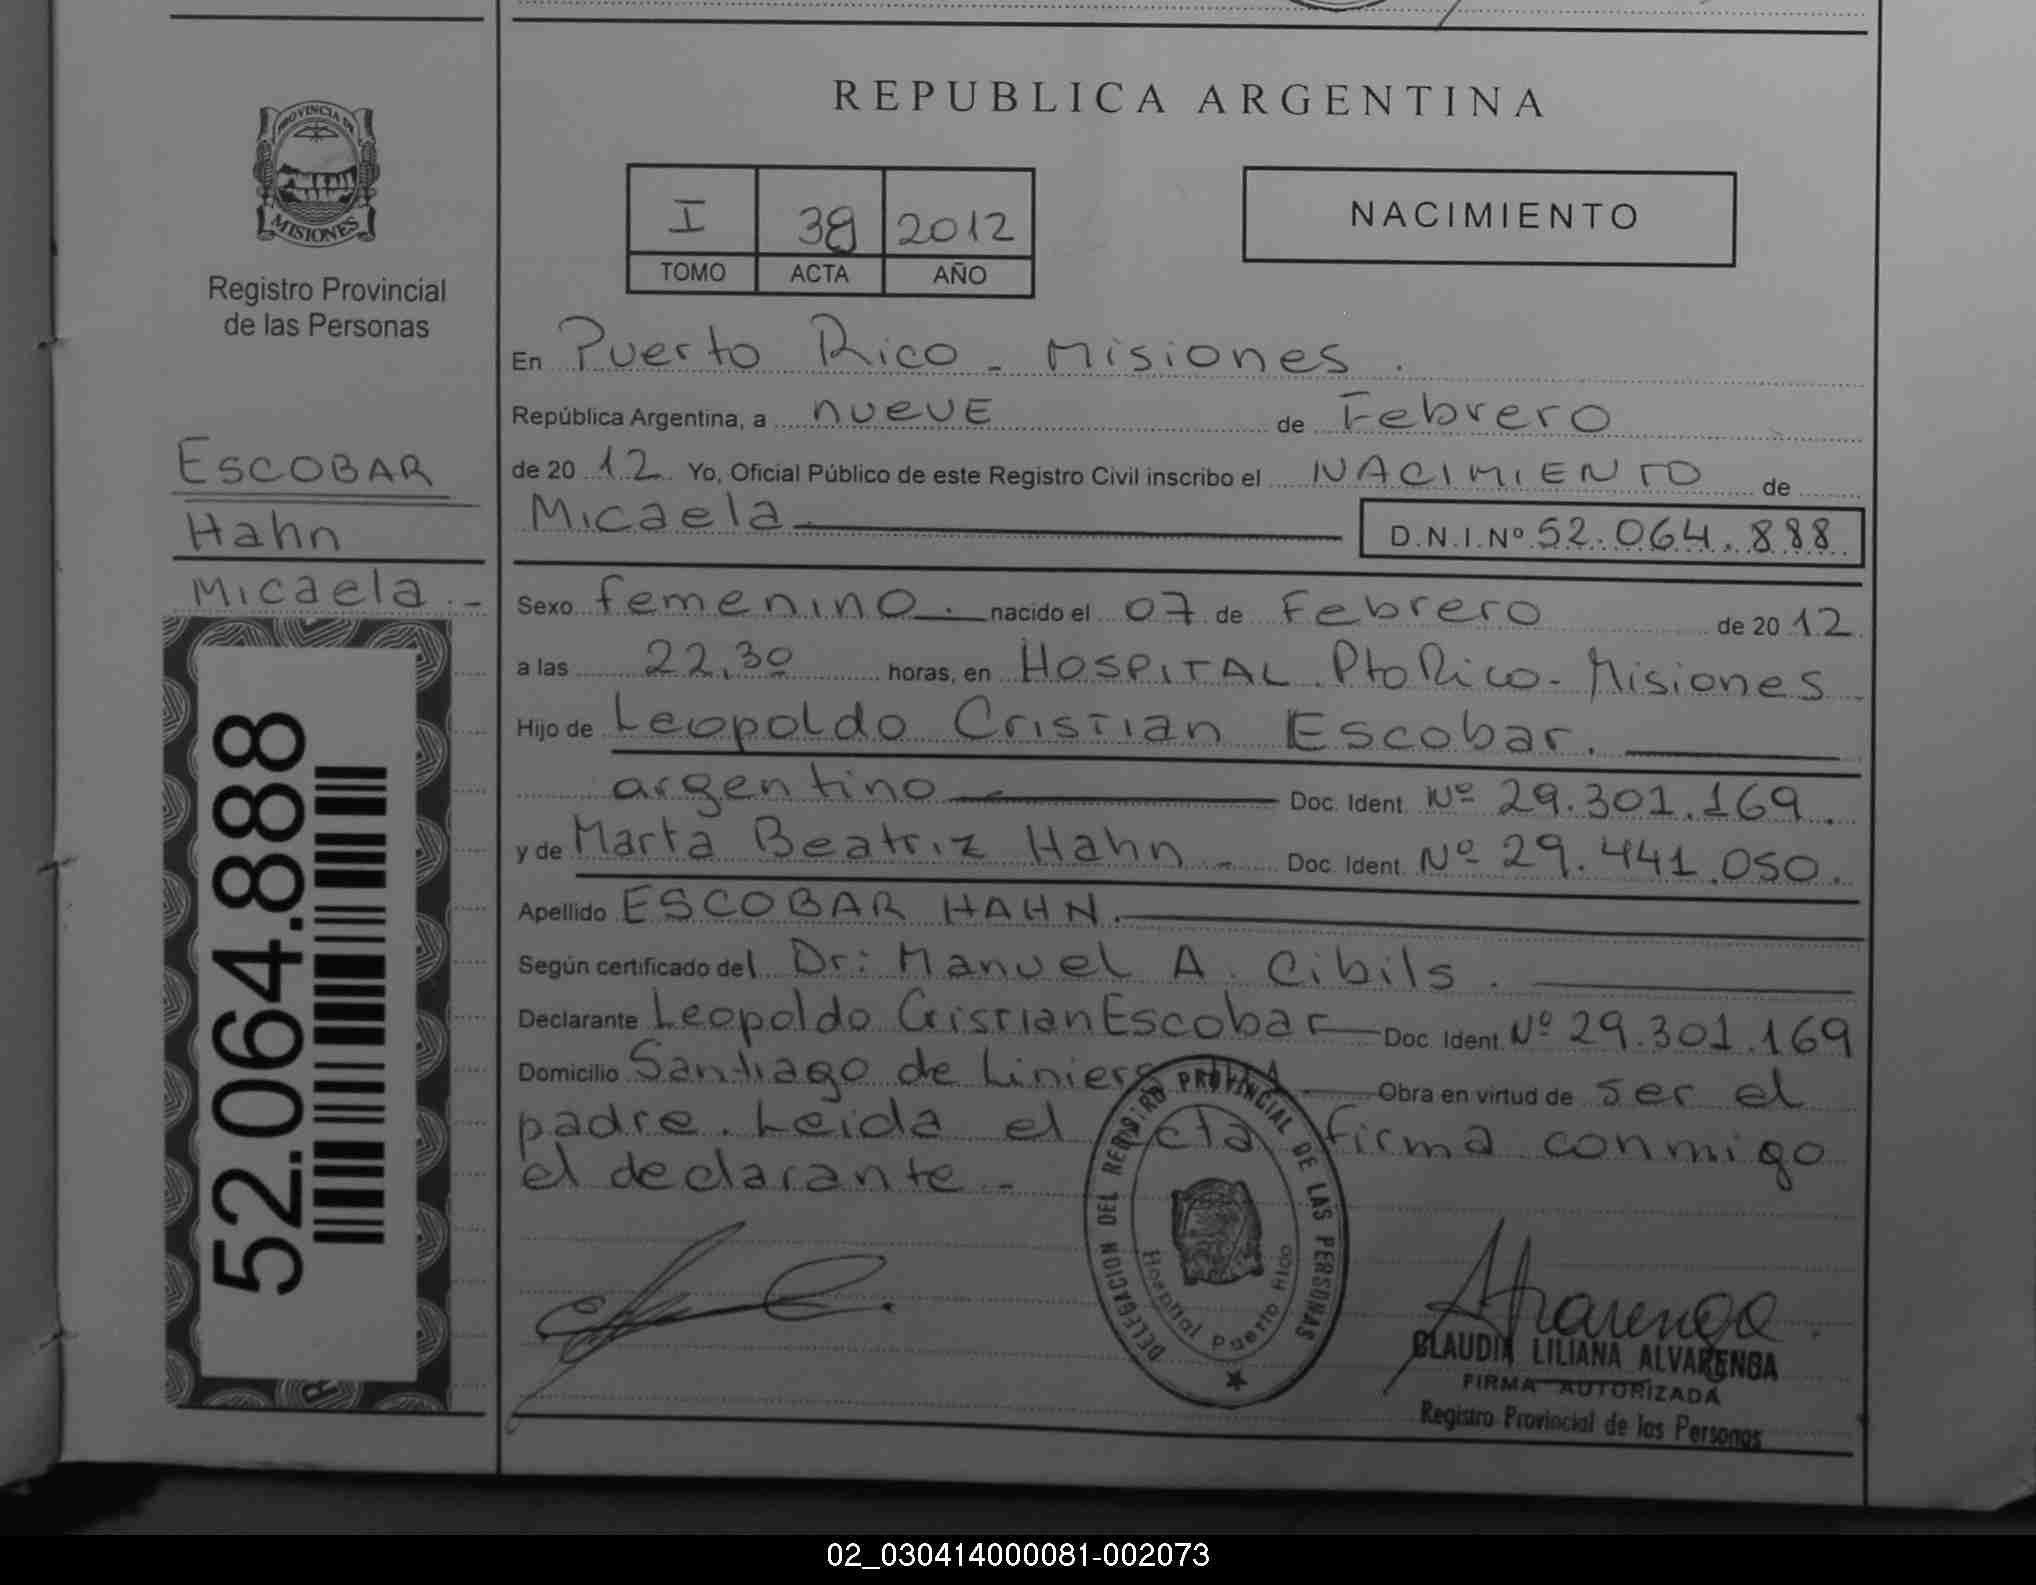 PROVINCIA DE
MISIONES
Registro Provincial
de las Personas
ESCOBAR
Hahn
Micaela.-
52.064.888
REPUBLICA ARGENTINA
I 38 2012
TOMO ACTA AÑO
NACIMIENTO
En Puerto Rico - Misiones.
República Argentina, a nueve de Febrero
de 2012 Yo, Oficial Público de este Registro Civil inscribo el NACIMIENTO de
Micaela. D.N.I.Nº 52.064.888
Sexo femenino. nacido el 07 de Febrero de 2012.
a las 22,30 horas, en HOSPITAL. Pto Rico - Misiones
Hijo de Leopoldo Cristian Escobar.
argentino Doc. Ident. Nº 29.301.169.
y de Marta Beatriz Hahn - Doc. Ident. Nº 29.441.050.
Apellido ESCOBAR HAHN.
Según certificado del Dr: Manuel A. Cibils.
Declarante Leopoldo Cristian Escobar Doc. Ident. Nº 29.301.169
Domicilio Santiago de Liniers Obra en virtud de ser el
padre. Leida el acta firma conmigo
el declarante -
DELEGACION DEL REGISTRO PROVINCIAL DE LAS PERSONAS
Hospital Puerto Rico
Alvarenga
CLAUDIA LILIANA ALVARENGA
FIRMA AUTORIZADA
Registro Provincial de las Personas
02_030414000081-002073